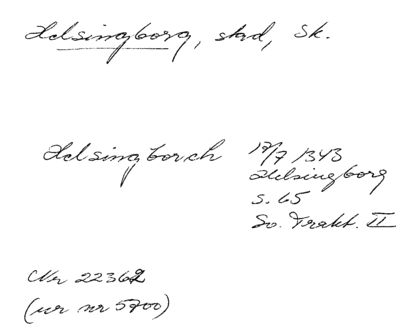 Helsingborg, stad, Sk.
Helsingborch 17/7 1343
Helsingborg
s. 65
Sv. Trakt. II
Nr 22362
(ur nr 5700)